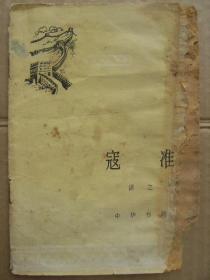 寇 准
中 华 书 局